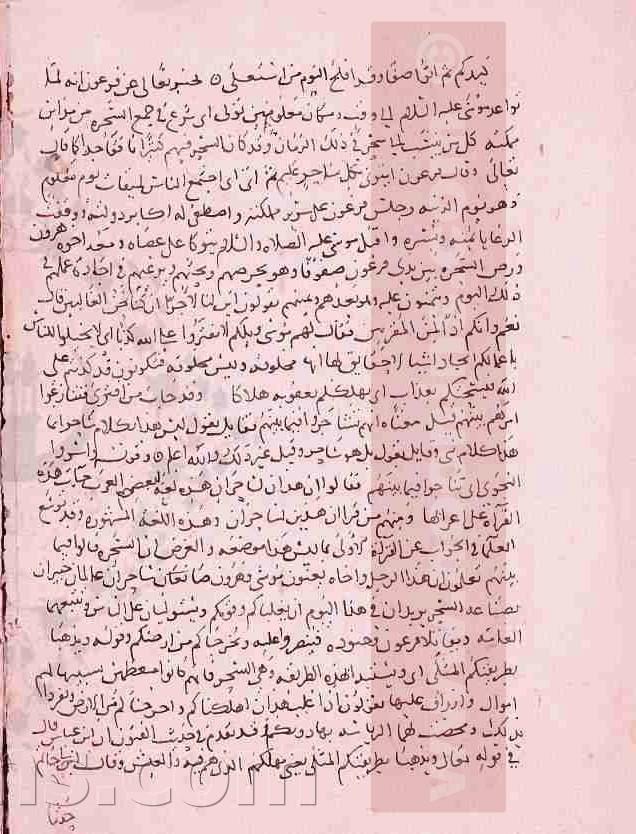 كيدكم ثم ائتوا صفا وقد افلح اليوم من استعلى ٥ يخبر تعالى عن فرعون انه لما
تواعد هو وموسى عليه السلام الى وقت ومكان معلومين تولى اى شرع في جمع السحرة من مداين
مملكته كل من ينسب الى سحر في ذلك الزمان وقد كان السحر فيهم كثيرا نافقا جدا كما قال
تعالى وقال فرعون ايتونى بكل ساحر عليم ثم اتى اى اجتمع الناس لميقات يوم معلوم
وهو يوم الزينة وجلس فرعون على سرير مملكته واصطف له اكابر دولته ووقفت
الرعايا يمنة ويسرة واقبل موسى عليه الصلاة والسلام متوكا على عصاه ومعه اخوه هرون
ووقف السحرة بين يدى فرعون صفوفا وهو يحرضهم ويحثهم ويرغبهم في اجادة عملهم في
ذلك اليوم ويتمنون عليه وهو يعدهم ويمنيهم يقولون اين لنا لاجرا ان كنا نحن الغالبين قال
نعم وانكم اذا لمن المقربين فقال لهم موسى ويلكم لا تفتروا على الله كذبا اى لا تخيلوا للناس
باعمالكم ايجاد اشيا لا حقايق لها انها مخلوقة وليس مخلوقة فتكونون قد كذبتم على
الله فيسحتكم بعذاب اى يهلكم بعقوبة هلاكا وقد خاب من افترى فتنازعوا
امرهم بينهم قيل معناه انهم تشاجروا فيما بينهم فقايل يقول ليس هذا بكلام ساحر انما
هذا كلام نبى وقايل يقول بل هو ساحر وقيل غير ذلك والله اعلم ٥ وقوله واسروا
النجوى اى تناجوا فيما بينهم فقالوا ان هذان لساحران هذه لغة لبعض العرب جات هذه
القراة على اعرابها ومنهم من قرا ان هذين لساحران وهذه اللغة المشهورة وقد توسع
العلما في الجواب عن القراة الاولى بما ليس هذا موضعه والغرض ان السحرة قالوا فيما
بينهم تعلمون ان هذا الرجل واخاه يعنون موسى وهرون صانعان ساحران عالمان خبيران
بصناعة السحر يريدان في هذا اليوم ان يغلباكم وقومكم ويستوليان على الناس ويتبعهما
العامة ويقاتلا فرعون وجنوده فينصرا عليه ويخرجاكم من ارضكم وقوله ويذهبا
بطريقتكم المثلى اى ويستبدا بهذه الطريقة وهى السحر فانهم كانوا معظمين بسببها لهم
اموال وارزاق عليها يقولون اذا غلب هذان اهلكاكم واخرجاكم من الارض وتفردا
بذلك وتمحضت لهما الرياسة بها دونكم وقد تقدم في حديث الفتون ان ابن عباس قال
في قوله تعالى ويذهبا بطريقتكم المثلى يعنى ملكهم الذى هم فيه والعيش وقال ابن ابى حاتم
حدثنا
s.com